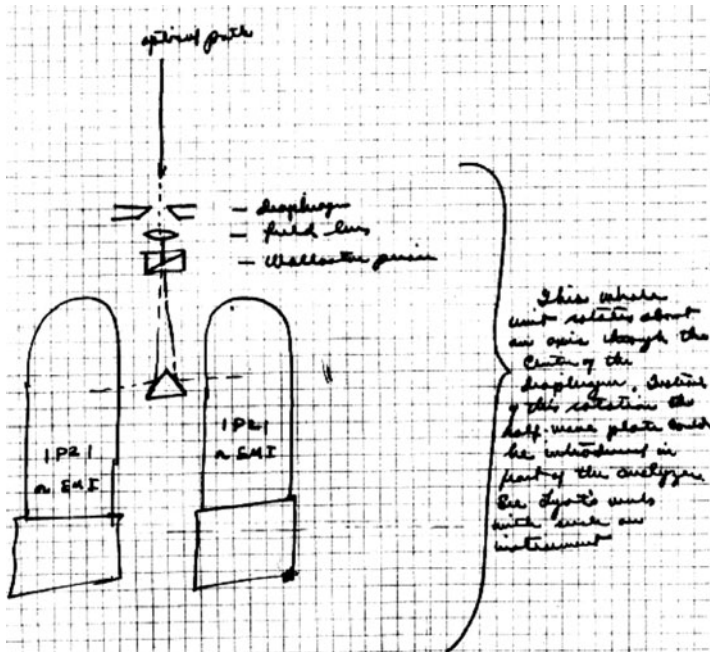 optical path
— diaphragm
— field lens
— Wollaston prism
1P21
or EMI
1P21
or EMI
This whole
unit rotates about
an axis through the
center of the
diaphragm. Instead
of this rotation the
half-wave plate could
be introduced in
front of the analyzer.
See Lyot's work
with such an
instrument